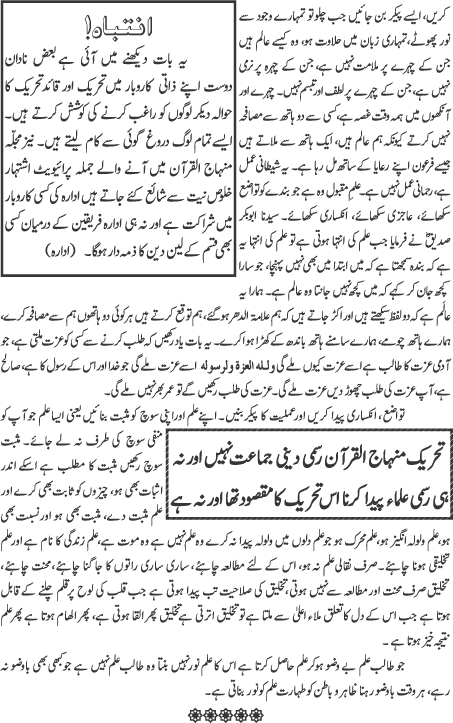 کریں، ایسے پیکر بن جائیں جب چلو تو تمہارے وجود سے
نور پھوٹے، تمہاری زبان میں حلاوت ہو، وہ کیسے عالم ہیں
جن کے چہرے پر ملامت نہیں ہے، جن کے چہرہ پر نرمی
نہیں ہے، جن کے چہرے پر لطف اور تبسم نہیں۔ چہرے اور
ماتھوں میں ہمہ وقت غصہ ہے، کسی سے دو ہاتھ سے مصافحہ
نہیں کرتے کیونکہ ہم عالم ہیں، ایک ہاتھ سے ملاتے ہیں
جیسے فرعون اپنے رعایا کے ساتھ مل رہا ہے۔ یہ شیطانی عمل
ہے، رحمانی عمل نہیں ہے۔ علم مقبول وہ ہے جو بندے کو تواضع
سکھائے، عاجزی سکھائے، انکساری سکھائے۔ سیدنا ابوبکر
صدیقؓ نے فرمایا جب علم کی انتہا ہوتی ہے تو علم کی انتہا یہ
ہے کہ بندہ سمجھتا ہے کہ میں ابتدا میں بھی نہیں پہنچا، جو سارا
کچھ جان کر کہے کہ میں کچھ نہیں جانتا وہ عالم ہے۔ ہمارا یہ
انتباہ!
یہ بات دیکھنے میں آئی ہے بعض نادان
دوست اپنے ذاتی کاروبار میں تحریک اور قائد تحریک کا
حوالہ دیکر لوگوں کو راغب کرنے کی کوشش کرتے ہیں۔
ایسے تمام لوگ دروغ گوئی سے کام لیتے ہیں۔ نیز مجلّہ
منہاج القرآن میں آنے والے جملہ پرائیویٹ اشتہار
خلوص نیت سے شائع کئے جاتے ہیں ادارہ کی کسی کاروبار
میں شراکت ہے اور نہ ہی ادارہ فریقین کے درمیان کسی
بھی قسم کے لین دین کا ذمہ دار ہوگا۔ (ادارہ)
عالم ہے کہ دو لفظ سیکھتے ہیں اور اکڑ جاتے ہیں کہ ہم علامۃ الدھر ہو گئے، ہم توقع کرتے ہیں ہر کوئی دو ہاتھوں ہم سے مصافحہ کرے،
ہمارے ہاتھ چومے، ہمارے سامنے ہاتھ باندھ کے کھڑا ہو اکرے۔ یہ بات یاد رکھیں کہ طلب کرنے سے کسی کو عزت ملتی ہے، جو
آدمی عزت کا طالب ہے اسے عزت کیوں ملے گی وللہ العزۃ ولرسولہ اسے عزت ملے گی جو خدا اور اس کے رسول کا ہے، صالح
ہے، آپ عزت کی طلب چھوڑ دیں عزت ملے گی۔ عزت کی طلب رکھیں گے تو عمر بھر نہیں ملے گی۔
تواضع، انکساری پیدا کریں اور عملیت کا پیکر بنیں۔ اپنے علم اور اپنی سوچ کو مثبت بنائیں یعنی ایسا علم جو آپ کو
منفی سوچ کی طرف نہ لے جائے۔ مثبت
سوچ رکھیں مثبت کا مطلب ہے اسکے اندر
اثبات بھی ہو، چیزوں کو ثابت بھی کرے اور
علم مثبت دے، مثبت بھی ہو اور نسبت بھی
تحریک منہاج القرآن رسمی دینی جماعت نہیں اور نہ
ہی رسمی علماء پیدا کرنا اس تحریک کا مقصود تھا اور نہ ہے
ہو، علم ولولہ انگیز ہو، علم محرک ہو جو علم دلوں میں ولولہ پیدا نہ کرے وہ علم نہیں ہے وہ موت ہے، علم زندگی کا نام ہے اور علم
تخلیقی ہونا چاہئے۔ صرف نقالی علم نہ ہو، اس کے لئے مطالعہ چاہئے، ساری ساری راتوں کا جاگنا چاہئے، محنت چاہئے،
صرف محنت اور مطالعہ سے تخلیق نہیں ہوتی، تخلیق کی صلاحیت تب پیدا ہوتی ہے جب قلب کی لوح پر قلم چلنے کے قابل
ہوتا ہے جب اس کے دل کا تعلق ملاء اعلیٰ سے ملتا ہے تو تخلیق اترتی ہے تخلیق پھر القا ہوتی ہے، پھر الھام ہوتا ہے پھر علم
نتیجہ خیز ہوتا ہے۔
جو طالب علم بے وضو ہو کر علم حاصل کرتا ہے اس کا علم نور نہیں بنتا وہ طالب علم نہیں ہے جو کبھی بھی باوضو نہ
رہے، ہر وقت باوضو رہنا ظاہر و باطن کو طہارت علم کو نور بناتی ہے۔